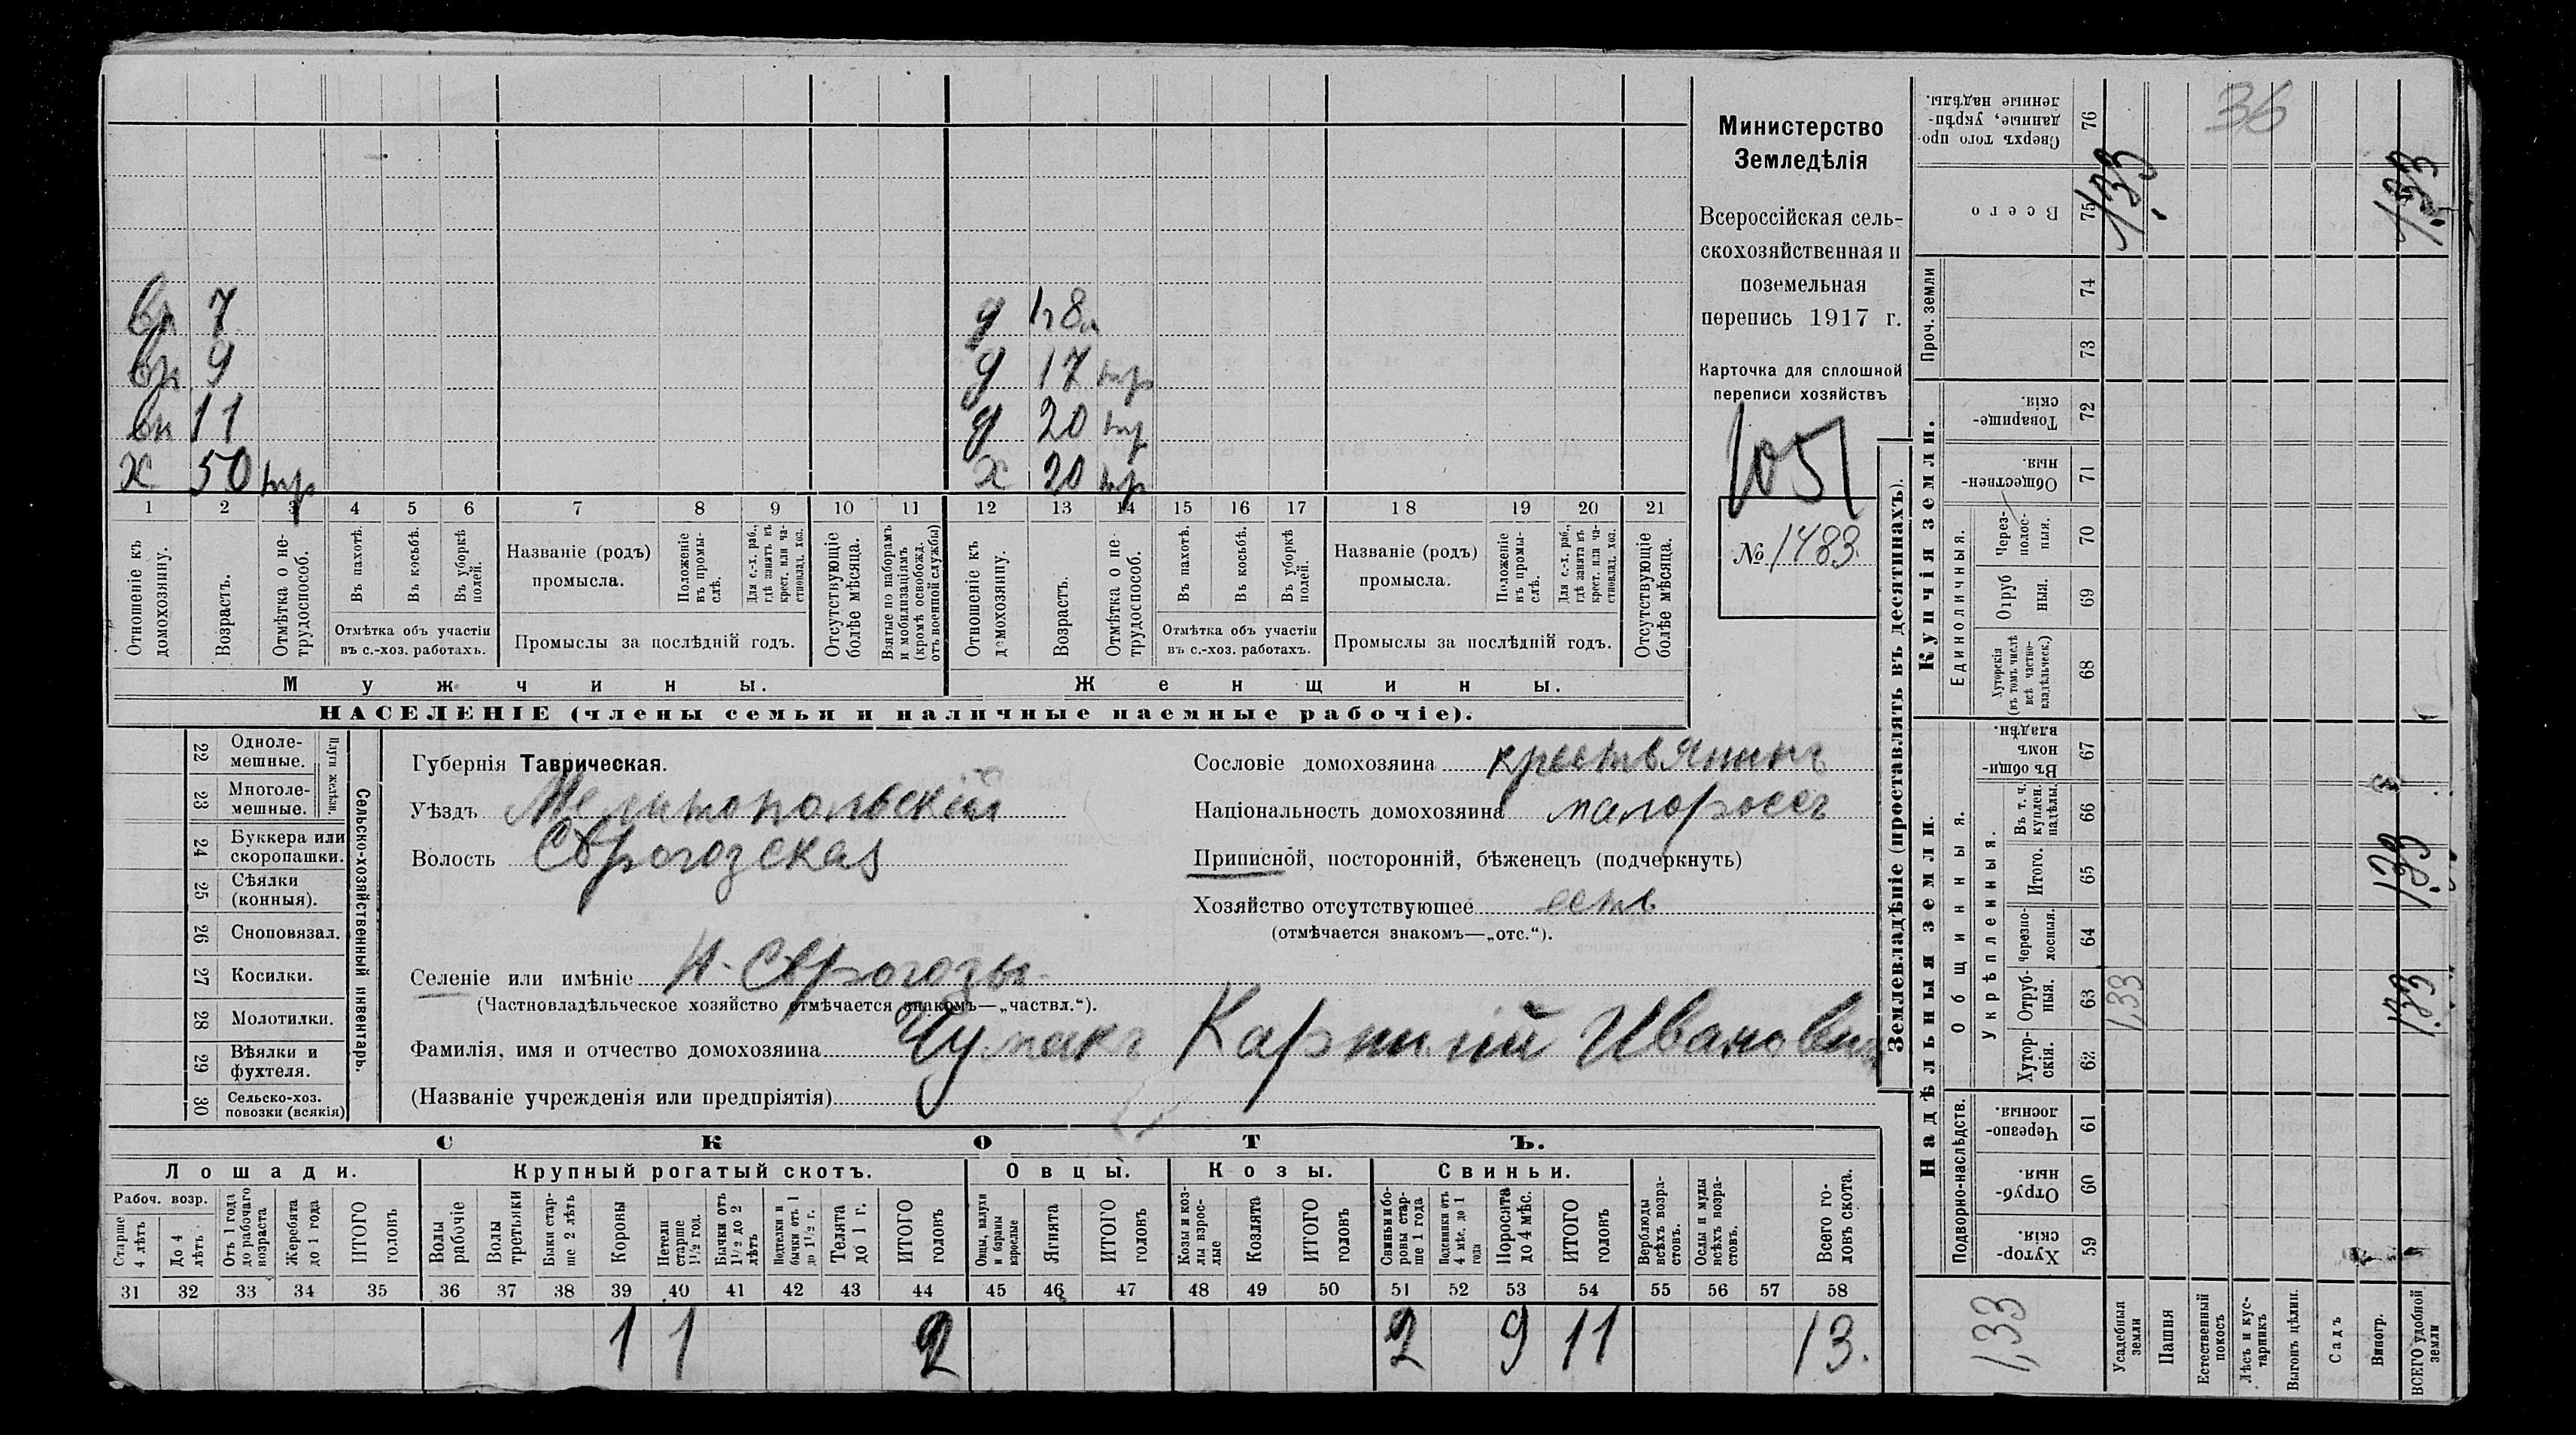 вн 7
вн 9
вн 11
х 50 тр
д 1 г 8 м
д 17 тр
д 20 тр
х 20 тр
1 2 3 4 5 6 7 8 9 10 11 12 13 14 15 16 17 18 19 20 21
Отношеніе къ домохозяину.
Возрастъ.
Отмѣтка о не-трудоспособ.
Въ пахотѣ.
Въ косьбѣ.
Въ уборкѣ полей.
Отмѣтка объ участіи въ с.-хоз. работахъ.
Названіе (родъ) промысла.
Положеніе въ промы-слѣ.
Для с.-х. раб., гдѣ занятъ въ крест. или ча-стновлад. хоз.
Промыслы за послѣдній годъ.
Отсутствующіе болѣе мѣсяца.
Взятые по наборамъ и мобилизаціямъ (кромѣ освобожд. отъ военной службы)
Отношеніе къ домохозяину.
Возрастъ.
Отмѣтка о не трудоспособ.
Въ пахотѣ.
Въ косьбѣ.
Въ уборкѣ полей.
Отмѣтка объ участіи въ с.-хоз. работахъ.
Названіе (родъ) промысла.
Положеніе въ промы-слѣ.
Для с.-х. раб., гдѣ занята въ крест. или ча-стновлад. хоз.
Промыслы за послѣдній годъ.
Отсутствующіе болѣе мѣсяца.
Мужчины.
Женщины.
НАСЕЛЕНІЕ (члены семьи и наличные наемные рабочіе).
Министерство
Земледѣлія
Всероссійская сель-
скохозяйственная и
поземельная
перепись 1917 г.
Карточка для сплошной
переписи хозяйствъ
1051
№ 1483.
22 Одноле-мешные.
23 Многоле-мешные.
Плуги желѣзн.
24 Буккера или скоропашки.
25 Сѣялки (конныя).
26 Сноповязал.
27 Косилки.
28 Молотилки.
29 Вѣялки и фухтеля.
30 Сельско-хоз. повозки (всякія)
Сельско-хозяйственный инвентарь.
Губернія Таврическая.
Уѣздъ Мелитопольскій
Волость Сѣрогозская
Селеніе или имѣніе Н-Сѣрогозы
(Частновладѣльческое хозяйство отмѣчается знакомъ—„частвл.“).
Фамилія, имя и отчество домохозяина Чумакъ Карппій Ивановичъ
(Названіе учрежденія или предпріятія)
Сословіе домохозяина крестьянинъ
Національность домохозяина малороссъ
Приписной, посторонній, бѣженецъ (подчеркнуть)
Хозяйство отсутствующее есть
(отмѣчается знакомъ—„отс.“).
СКОТЪ.
Лошади.
Крупный рогатый скотъ.
Овцы.
Козы.
Свиньи.
Рабоч. возр.
Старше 4 лѣтъ
До 4 лѣтъ
Отъ 1 года до рабочаго возраста
Жеребята до 1 года
ИТОГО головъ
Волы рабочіе
Волы третьяки
Быки стар-ше 2 лѣтъ
Коровы
Нетели старше 1½ год.
Бычки отъ 1½ до 2 лѣтъ
Подтелки и бычки отъ 1 до 1½ г.
Телята до 1 г.
ИТОГО головъ
Овцы, валухи и бараны взрослые
Ягнята
ИТОГО головъ
Козы и коз-лы взрос-лые
Козлята
ИТОГО головъ
Свиньи и бо-ровы стар-ше 1 года
Подсвинки отъ 4 мѣс. до 1 года
Поросята до 4 мѣс.
ИТОГО головъ
Верблюды всѣхъ возра-стовъ.
Ослы и мулы всѣхъ возра-стовъ.
Всего го-ловъ скота.
31 32 33 34 35 36 37 38 39 40 41 42 43 44 45 46 47 48 49 50 51 52 53 54 55 56 57 58
1 1 2 2 9 11 13.
Землевладѣніе (проставлять въ десятинахъ).
Купчія земли.
Надѣльныя земли.
76 Сверхъ того про-данные, укрѣп-ленные надѣлы.
75 Всего
Проч. земли
74
73
72 Товарище-скія.
71 Обществен-ныя.
Единоличныя.
70 Через-полос-ныя.
69 Отруб ныя.
68 Хуторскія (въ томъ числѣ всѣ частно-владѣльческ.)
Общинныя.
67 Въ общи-номъ владѣн.
Укрѣпленныя.
66 Въ т. ч. куплен. надѣлы.
65 Итого.
64 Черезпо-лосныя.
63 Отруб-ныя.
62 Хутор-скія.
Подворно-наслѣдств.
61 Черезпо-лосныя.
60 Отруб-ныя.
59 Хутор-скія.
Усадебныя земли
Пашня
Естественный покосъ
Лѣсъ и кус-тарникъ
Выгонъ цѣлин.
Садъ
Виногр.
ВСЕГО удобной земли
36
1,33
1,33
1,33
1,33
1,33
1,33